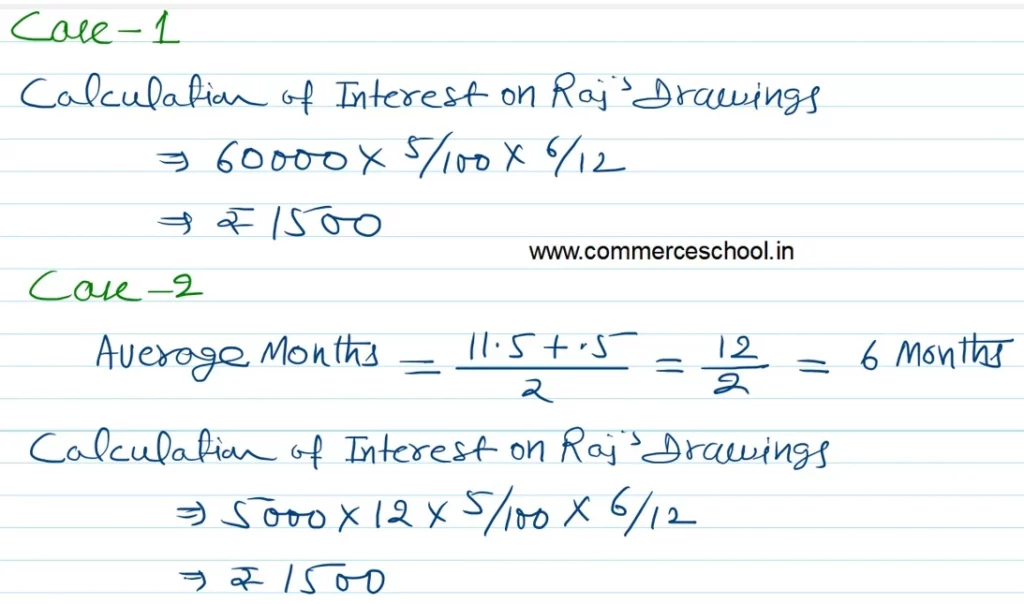 Case - 1
Calculation of Interest on Raj's Drawings
⇒ 60000 × 5/100 × 6/12
⇒ ₹ 1500
www.commerceschool.in
Case - 2
Average Months = 11.5 + .5 / 2 = 12 / 2 = 6 Months
Calculation of Interest on Raj's Drawings
⇒ 5000 × 12 × 5/100 × 6/12
⇒ ₹ 1500